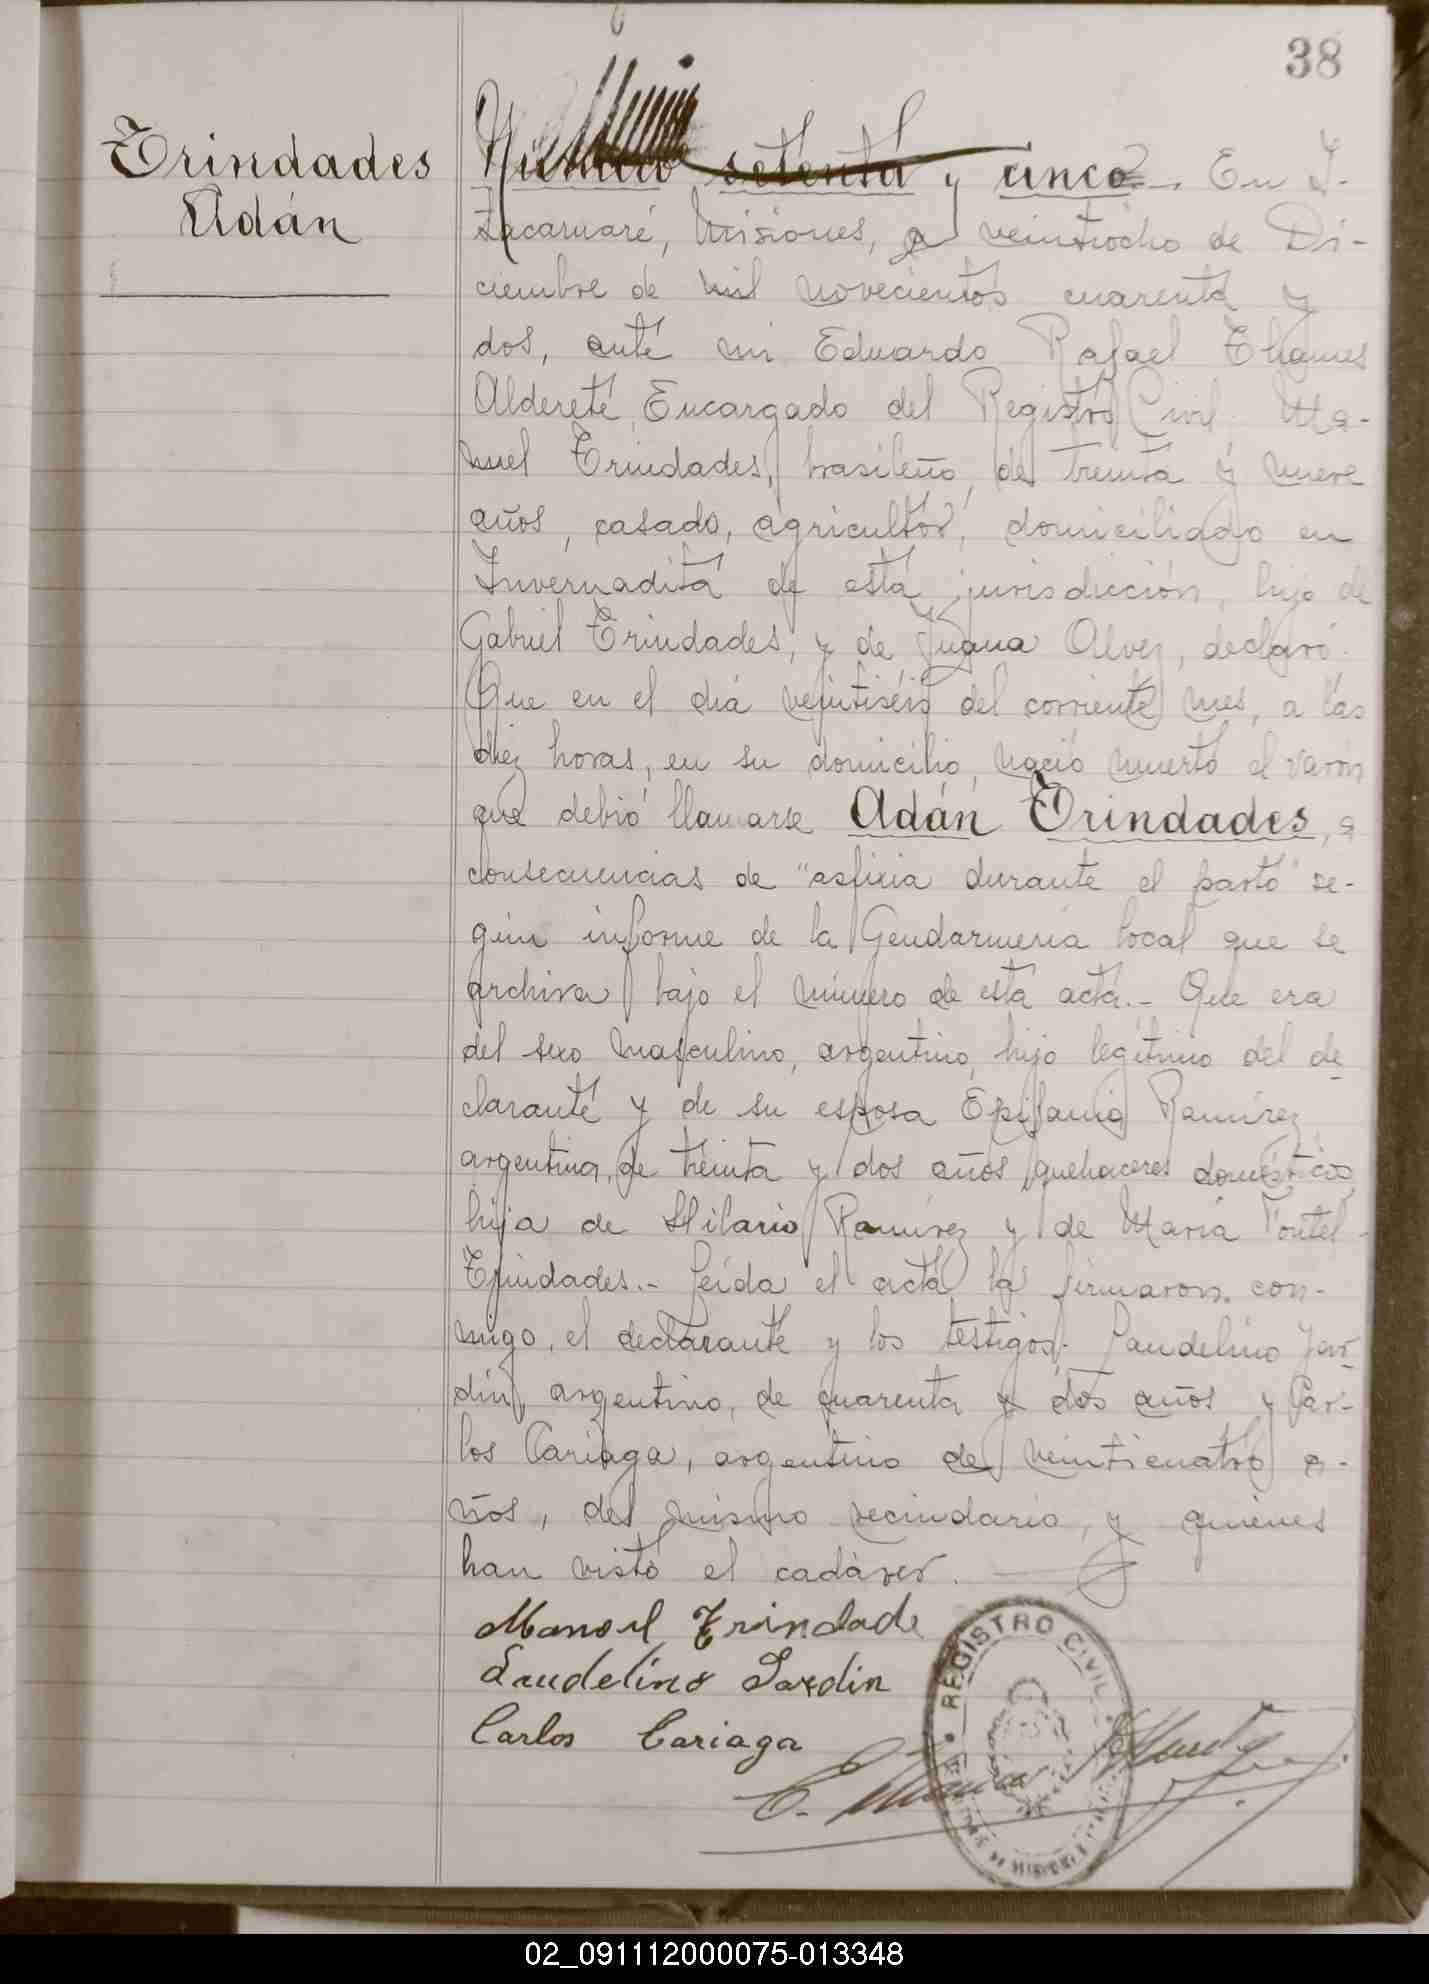 38
Trindades
Adán
Número setenta y cinco. En I-
tacaruaré, Misiones, a veintiocho de Di-
ciembre de mil novecientos cuarenta y
dos, ante mi Eduardo Rafael Thames
Alderete, Encargado del Registro Civil, Ma-
nuel Trindades, brasileño, de treinta y nueve
años, casado, agricultor, domiciliado en
Invernadita de esta jurisdicción, hijo de
Gabriel Trindades, y de Juana Alvez, declaró:
Que en el dia veintiséis del corriente mes, a las
diez horas, en su domicilio, nació muerto el varón
que debió llamarse Adán Trindades, a
consecuencias de "asfixia durante el parto" se-
gún informe de la Gendarmeria local que se
archiva bajo el número de esta acta.- Que era
del sexo masculino, argentino, hijo legítimo del de-
clarante y de su esposa Epifania Ramírez
argentina, de treinta y dos años, quehaceres domésticos,
hija de Hilario Ramírez y de María Fontel-
Trindades.- Leída el acta la firmaron con-
migo, el declarante y los testigos: Laudelino Jar-
din, argentino, de cuarenta y dos años y Car-
los Cariaga, argentino de veinticuatro a-
ños, del mismo vecindario, y quienes
han visto el cadáver.
Manoel Trindade
Laudelino Jardin
Carlos Cariaga
REGISTRO CIVIL
02_091112000075-013348